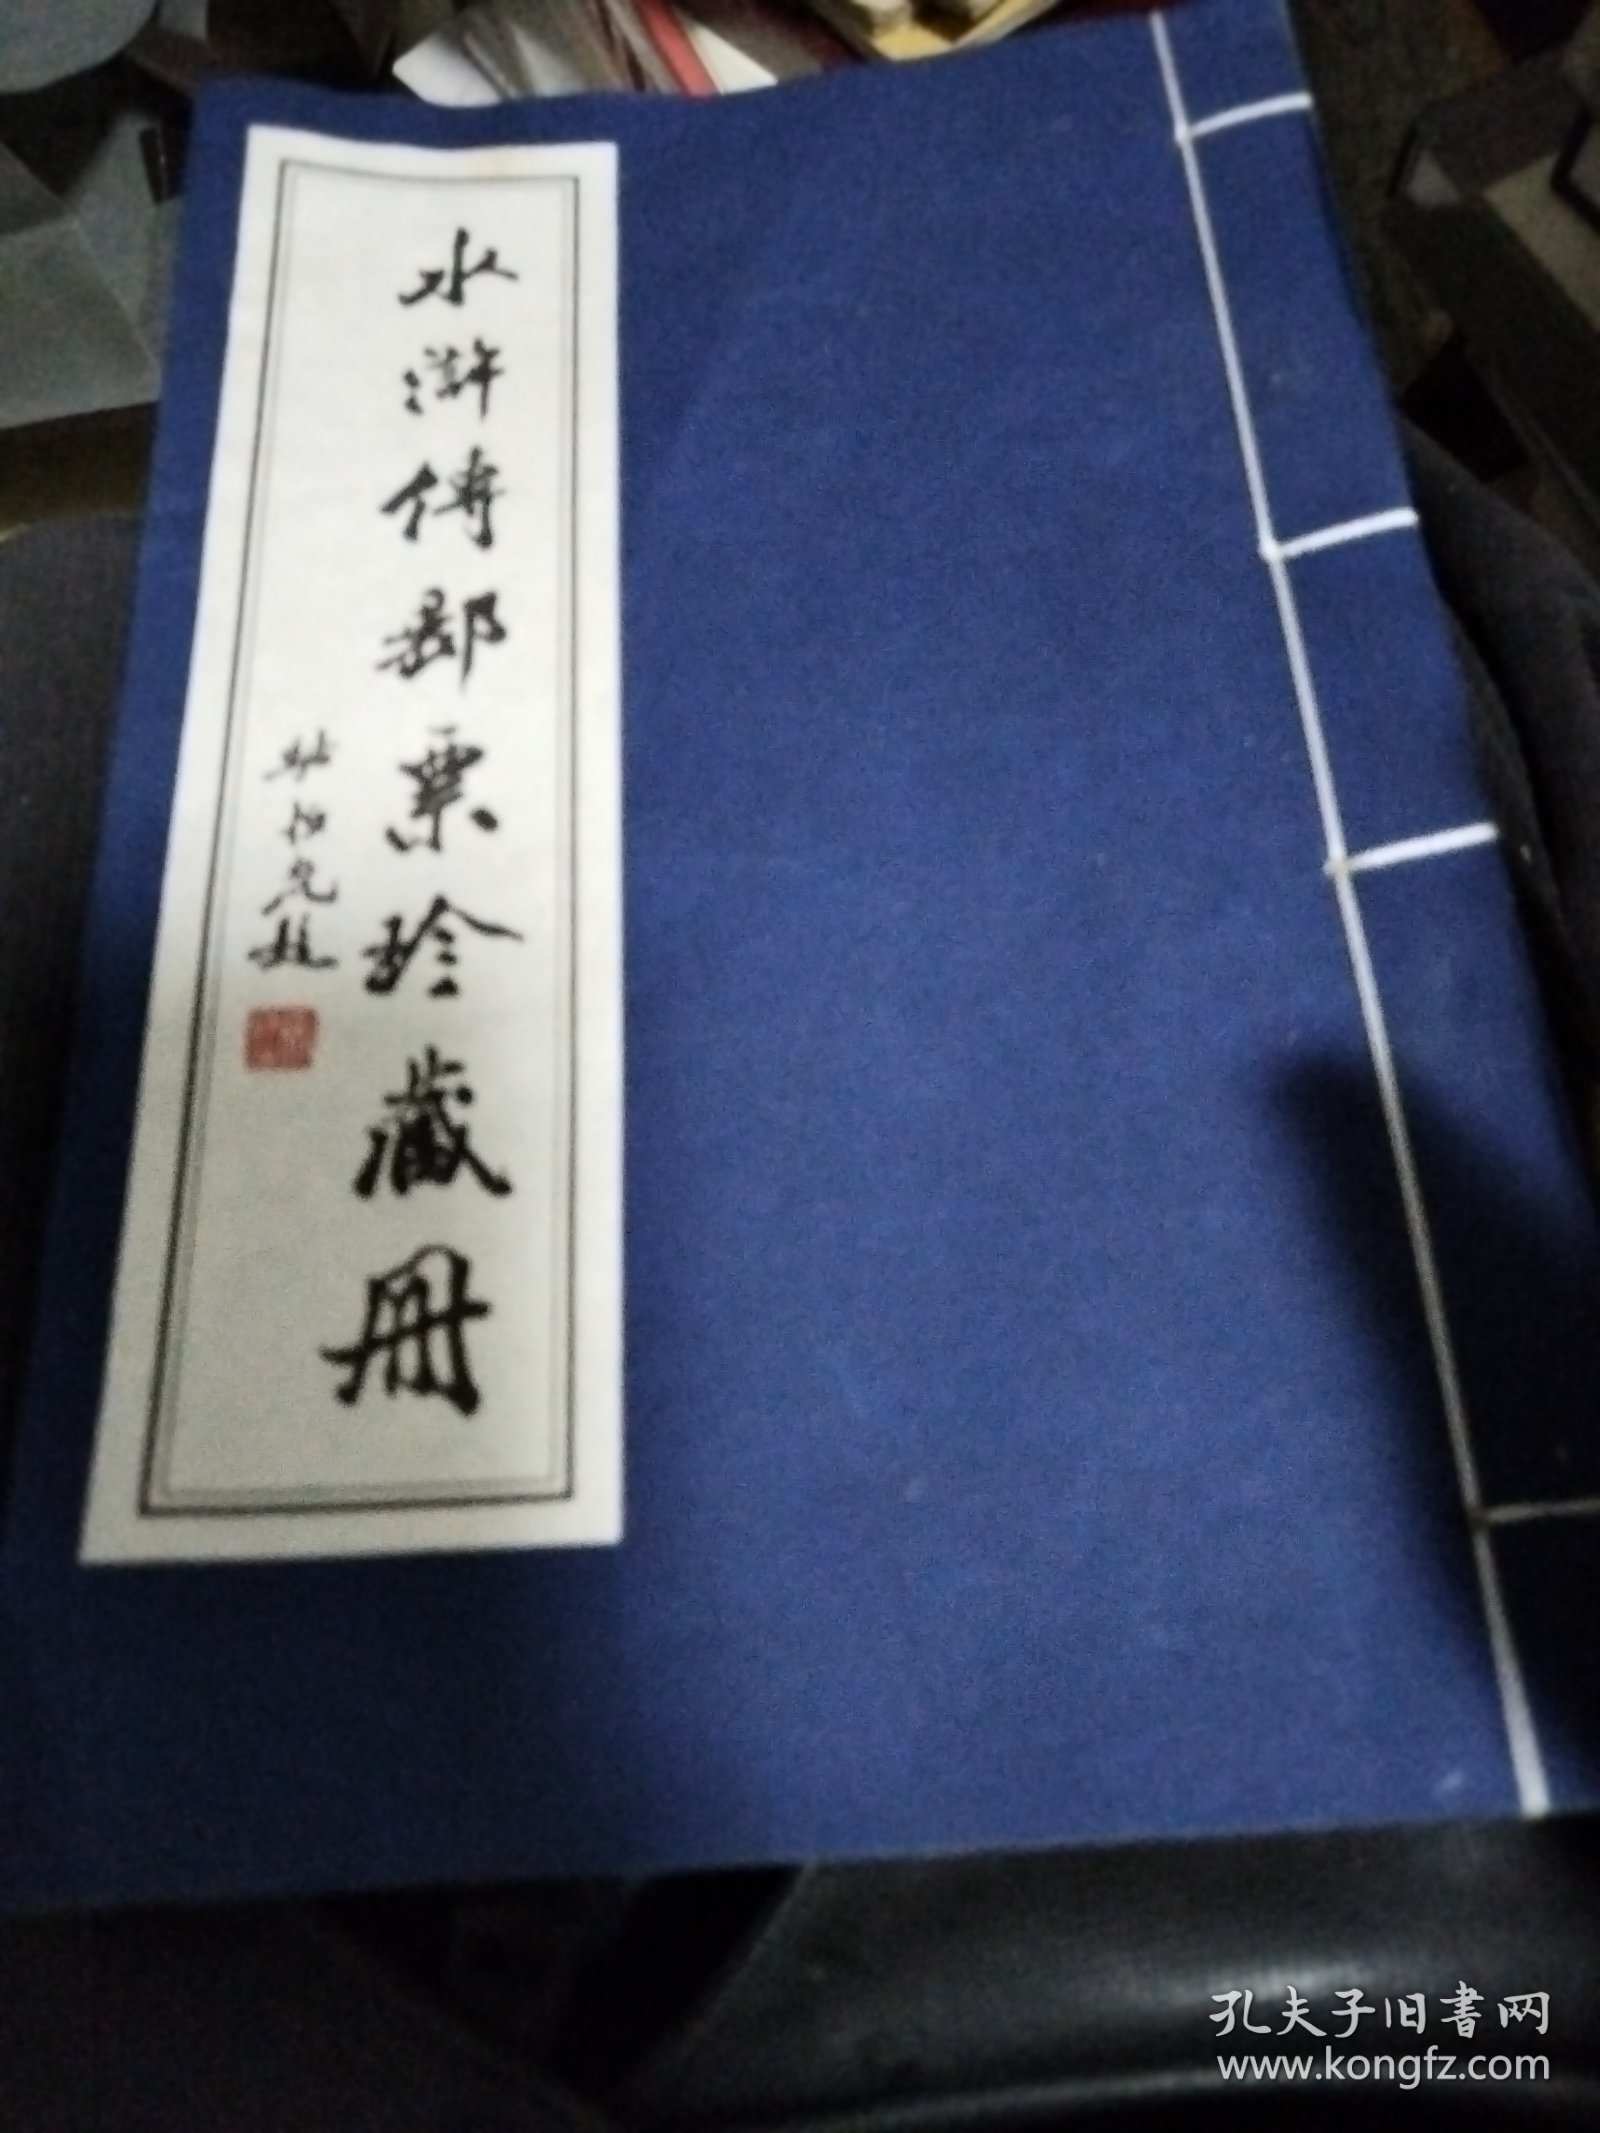 水滸傳郵票珍藏册
孔夫子旧書网
www.kongfz.com